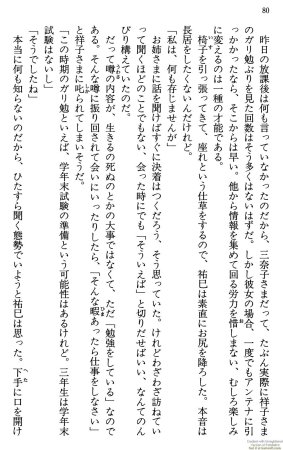 80
昨日の放課後は何も言っていなかったのだから、三奈子さまだって、たぶん実際に祥子さま
のガリ勉ぶりを見た回数はそう多くはないはずだ。しかし彼女の場合、一度でもアンテナに引
っかかったなら、そこからは早い。他から情報を集めて回る労力を惜しまない、むしろ楽しみ
に変えるのは一種の才能である。
椅子を引っ張ってきて、座れという仕草をするので、祐巳は素直にお尻を降ろした。本音は
長居をしたくないんだけれど。
「私は、何も存じませんが」
お姉さまに話を聞けばすぐに決着はつくだろう、そう思っていた。けれどわざわざ訪ねてい
って聞くほどのことでもない、会った時にでも「そういえば」と切りだせばいい、なんてのん
びり構えてたのだ。
だって噂の内容が、生きるの死ぬのとかの大事ではなくて、ただ「勉強をしている」なので
ある。そんな噂に振り回されて会いにいったりしたら、「そんな暇あったら仕事をしなさい」
と祥子さまに叱られてしまいそうだ。
「この時期のガリ勉といえば、学年末試験の準備という可能性はあるけれど。三年生は学年末
試験はないし」
「そうでしたね」
本当に何も知らないのだから、ひたすら聞く態勢でいようと祐巳は思った。下手に口を開け